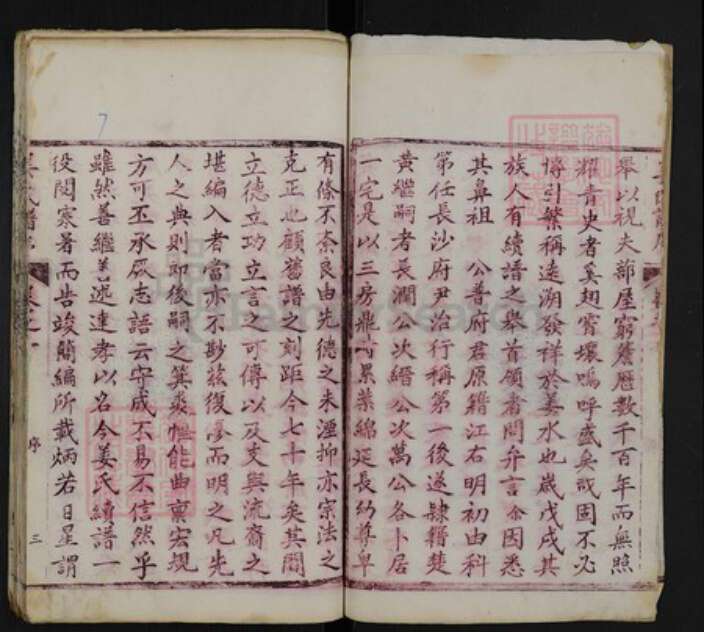 舉以視夫蔀屋窮簷歷數千百年而無照
耀青史者奚翅霄壤嗚呼盛矣哉固不必
慱引繁稱遠溯發祥於姜水也歲戊戌其
族人有續譜之舉首領者問弁言余因悉
其鼻祖 公普府君原籍江右明初由科
第任長沙府尹治行稱第一後遂隸籍楚
黃繼嗣者長瀾公次縉公次萬公各卜居
一宅是以三房鼎 累葉綿延長幼尊卑
有條不紊良由先德之未湮抑亦宗法之
克正也顧舊譜之刻距今七十年矣其間
立德立功立言之可傳以及支與流裔之
堪編入者當亦不尠茲復彦而明之凡先
人之典則即後嗣之箕裘惟能曲稟宏規
方可丕承厥志語云守成不易不信然乎
雖然善繼善述達孝以名今姜氏續譜一
役閱寒暑而告竣簡編所載炳若日星謂
姜氏譜
序
三
7
FamilySearch